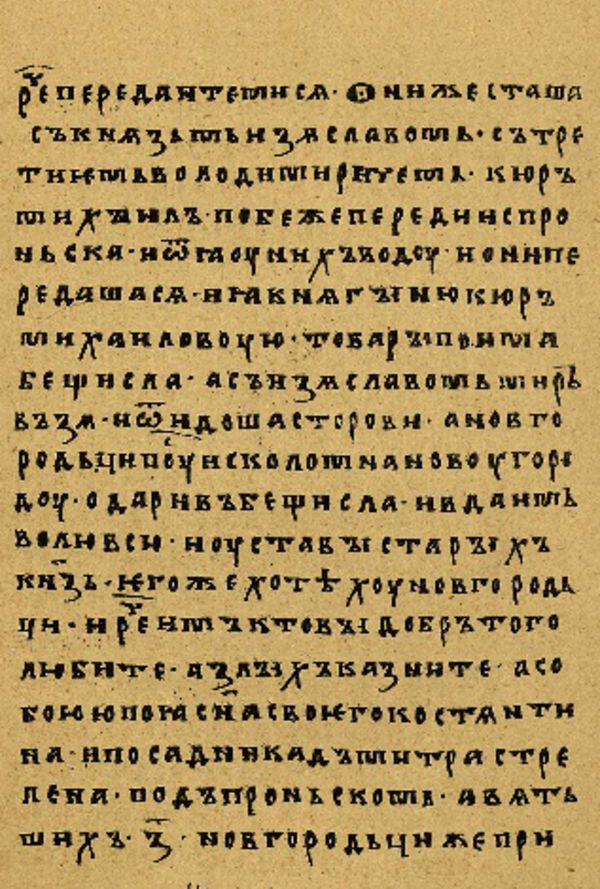 рⷱ҇е передаите ми сѧ · ѻни же сташа
съ кнѧземь изѧславомь · съ тре
тиіемь володимирицемь · кюръ
михаилъ · побеже переди ис про
ньска · и ѿꙗоуи ихъ водоу · и они пе
редашасѧ · и ꙗ кнѧгыню кюръ
михаиловоую · товаръ поима
бещисла · а съ изѧславомь миръ
възѧ · и ѿидоша сторови · а новго
родьци поуи с коломна новоугоро
доу · одаривъ бещисла · и вда имъ
волю всю · и оуставы старыхъ
кнѧзь · ѥгоже хотѣхоу новгородь
ци · и рⷱ҇е имъ кто вы добръ того
любите · а злыхъ казните · а со
бою поꙗ сна своѥго костѧнти
на · и посадника дъмитра стре
лена · подъ проньскомь · а вѧть
шихъ · з҃ · новгородьци же при